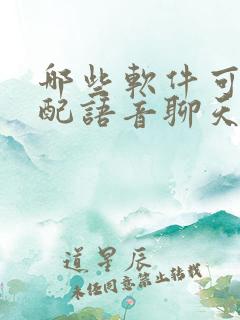 哪些軟件可
配語音聊天
道星辰
未经同意禁止转载